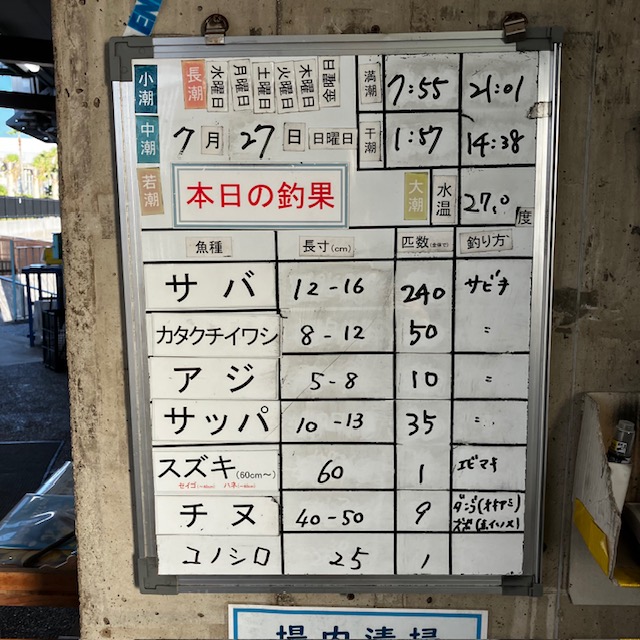 小潮 長潮 水曜日 月曜日 土曜日 火曜日 木曜日 金曜日 満潮 7:55 21:01
中潮 7月27日 日曜日 干潮 1:57 14:38
若潮 本日の釣果 大潮 水温 27.0度
魚種 長寸(cm) 匹数 釣り方
サバ 12-16 240 サビキ
カタクチイワシ 8-12 50 〃
アジ 5-8 10 〃
サッパ 10-13 35 〃
スズキ(60cm〜) 60 1 エビマキ
セイゴ(〜40cm) ハネ(〜60cm)
チヌ 40-50 9 ダンゴ(オキアミ)
コノシロ 25 1
場内清掃